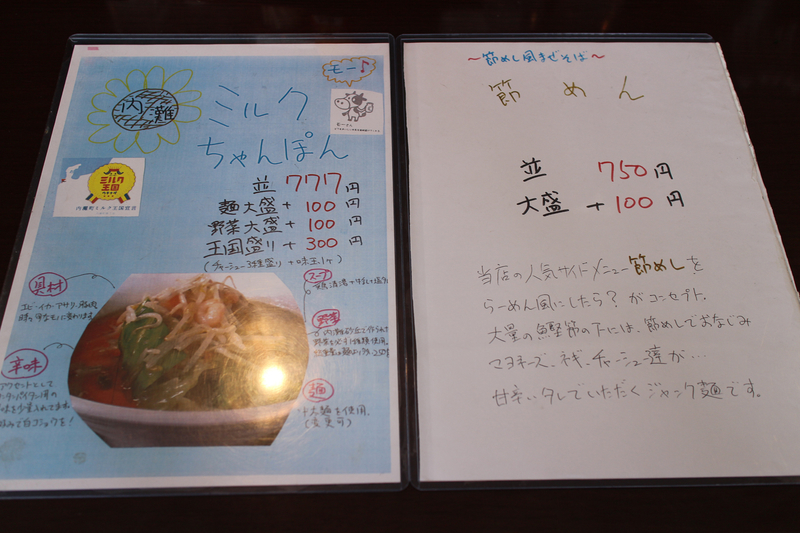 モー♪
内灘
ミルク
ちゃんぽん
ミルク
王国
内灘町ミルク王国宣言
並 777円
麺大盛 + 100円
野菜大盛 + 100円
王国盛り + 300円
(チャーシュー3種盛り +味玉1ヶ)
具材
エビ・イカ・アサリ・豚肉
スープ
野菜
辛味
アクセントとして
麺
を使用
(変更可)
〜節めし風まぜそば〜
節めん
並 750円
大盛 +100円
当店の人気サイドメニュー節めしを
らーめん風にしたら?がコンセプト.
大量の魚鰹節の下には、節めしでおなじみ
マヨネーズ、ネギ、チャーシュー達が…
甘辛いタレでいただくジャンク麺です。